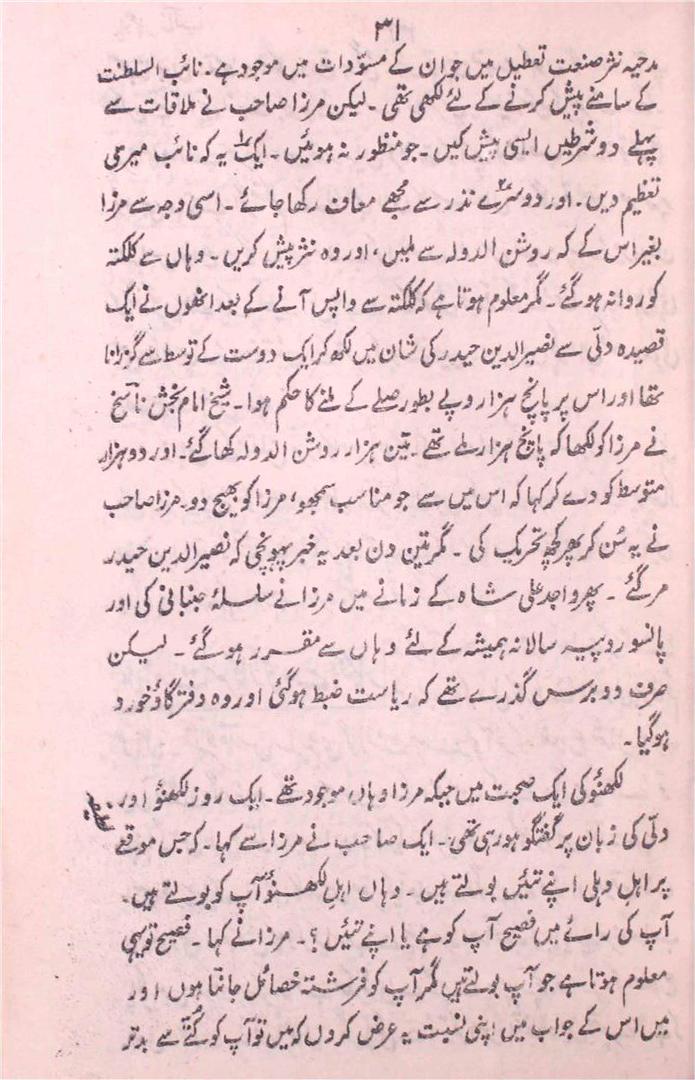 ۳۱
مدحیہ نثر صنعت تعطیل میں جو ان کے مسوّدات میں موجود ہے۔ نائب السلطنت
کے سامنے پیش کرنے کے لئے لکھی تھی۔ لیکن مرزا صاحب نے ملاقات سے
پہلے دو شرطیں ایسی پیش کیں۔ جو منظور نہ ہوئیں۔ ایک یہ کہ نائب میری
تعظیم دیں۔ اور دوسرے نذر سے مجھے معاف رکھا جائے۔ اسی وجہ سے مرزا
بغیر اس کے کہ روشن الدولہ سے ملیں، اور وہ نثر پیش کریں۔ وہاں سے کلکتہ
کو روانہ ہو گئے۔ مگر معلوم ہوتا ہے کہ کلکتہ سے واپس آنے کے بعد انھوں نے ایک
قصیدہ دلّی سے نصیر الدین حیدر کی شان میں لکھ کر ایک دوست کے توسط سے گزرانا
تھا اور اس پر پانچ ہزار روپے بطور صلے کے ملنے کا حکم ہوا۔ شیخ امام بخش ناسخ
نے مرزا کو لکھا کہ پانچ ہزار ملے تھے۔ تین ہزار روشن الدولہ کھا گئے۔ اور دو ہزار
متوسط کو دے کر کہا کہ اس میں سے جو مناسب سمجھو، مرزا کو بھیج دو۔ مرزا صاحب
نے یہ سُن کر پھر کچھ تحریک کی۔ مگر تین دن بعد یہ خبر پہونچی کہ نصیر الدین حیدر
مر گئے۔ پھر واجد علی شاہ کے زمانے میں مرزا نے سلسلۂ جنبانی کی اور
پانسو روپیہ سالانہ ہمیشہ کے لئے وہاں سے مقرر ہو گئے۔ لیکن
صرف دو برس گذرے تھے کہ ریاست ضبط ہو گئی اور وہ دفتر گاؤ خورد
ہو گیا۔
لکھنؤ کی ایک صحبت میں جبکہ مرزا وہاں موجود تھے۔ ایک روز لکھنؤ اور
دلّی کی زبان پر گفتگو ہو رہی تھی۔ ایک صاحب نے مرزا سے کہا۔ کہ جس موقع
پر اہل دہلی اپنے تئیں بولتے ہیں۔ وہاں اہل لکھنؤ آپ کو بولتے ہیں۔
آپ کی رائے میں فصیح آپ کو ہے یا اپنے تئیں؟۔ مرزا نے کہا۔ فصیح تو یہی
معلوم ہوتا ہے جو آپ بولتے ہیں مگر آپ کو فرشتہ خصائل جانتا ہوں اور
میں اس کے جواب میں اپنی نسبت یہ عرض کروں کہ میں تو آپ کو کُتّے سے بدتر